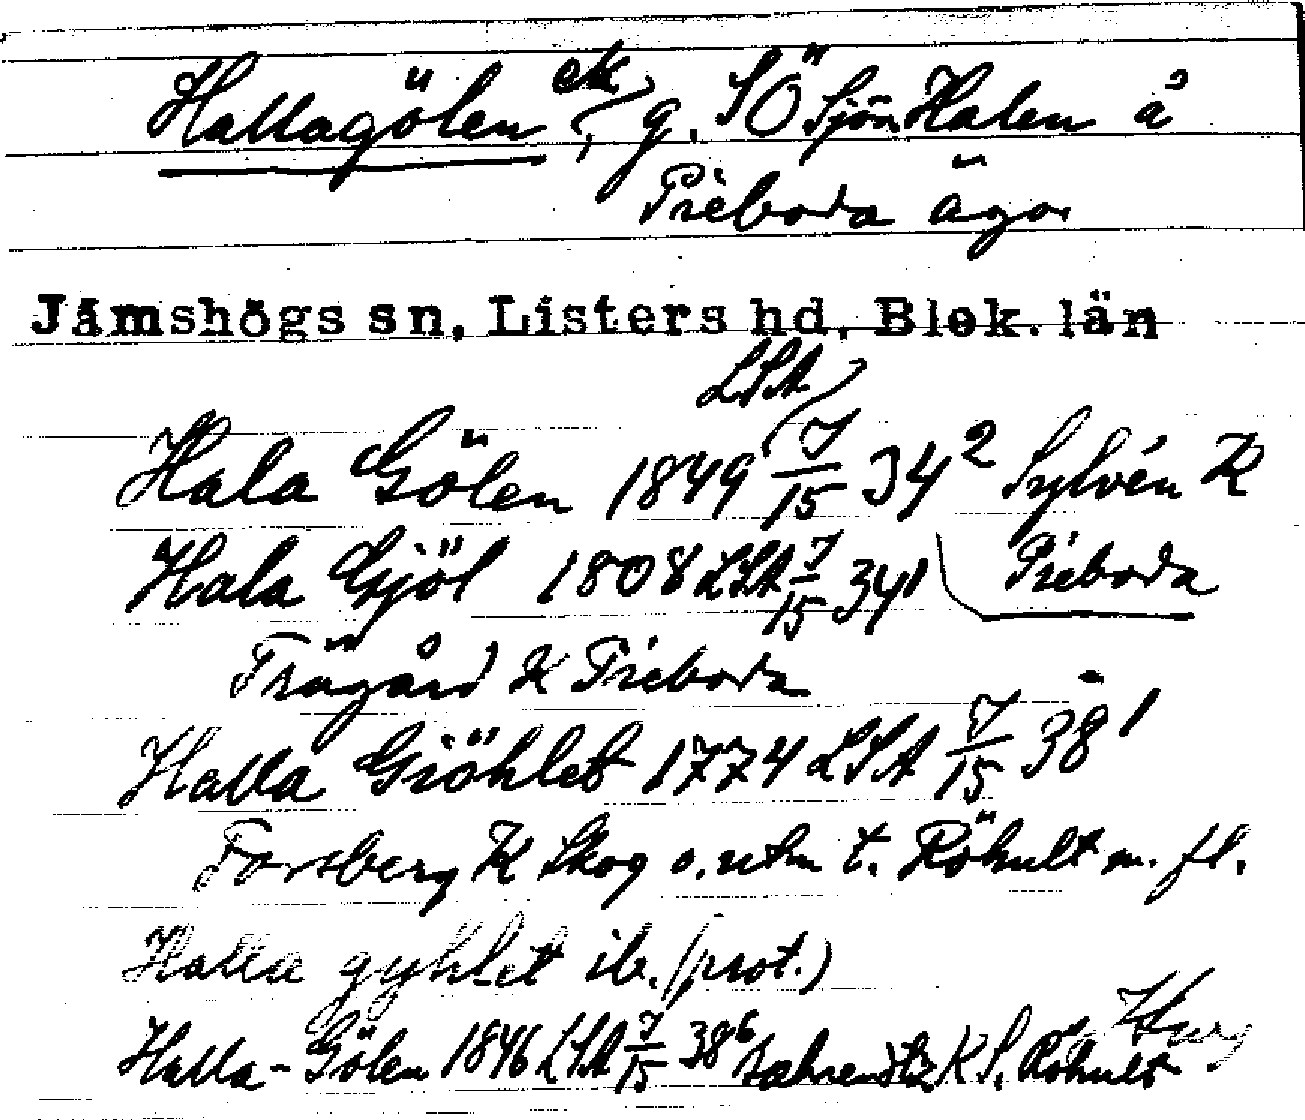 Hallagölen ek, g. SÖ Sjön Halen å
Prèboda ägor
Jämshögs sn, Listers hd, Blek. län
Hala Gölen 1849 LSA 7/15 34² Sylvén K
Hala Gjöl 1808 LSA 7/15 34¹ Prèboda
Trägård K Prèboda
Halla Giöhlet 1774 LSA 7/15 38¹
Forsberg K Skog o. utm t. Röhult m. fl.
Halla gyhlet ib. (prot.)
Halla-Gölen 1846 LSA 7/15 38⁶ K S. Röhult